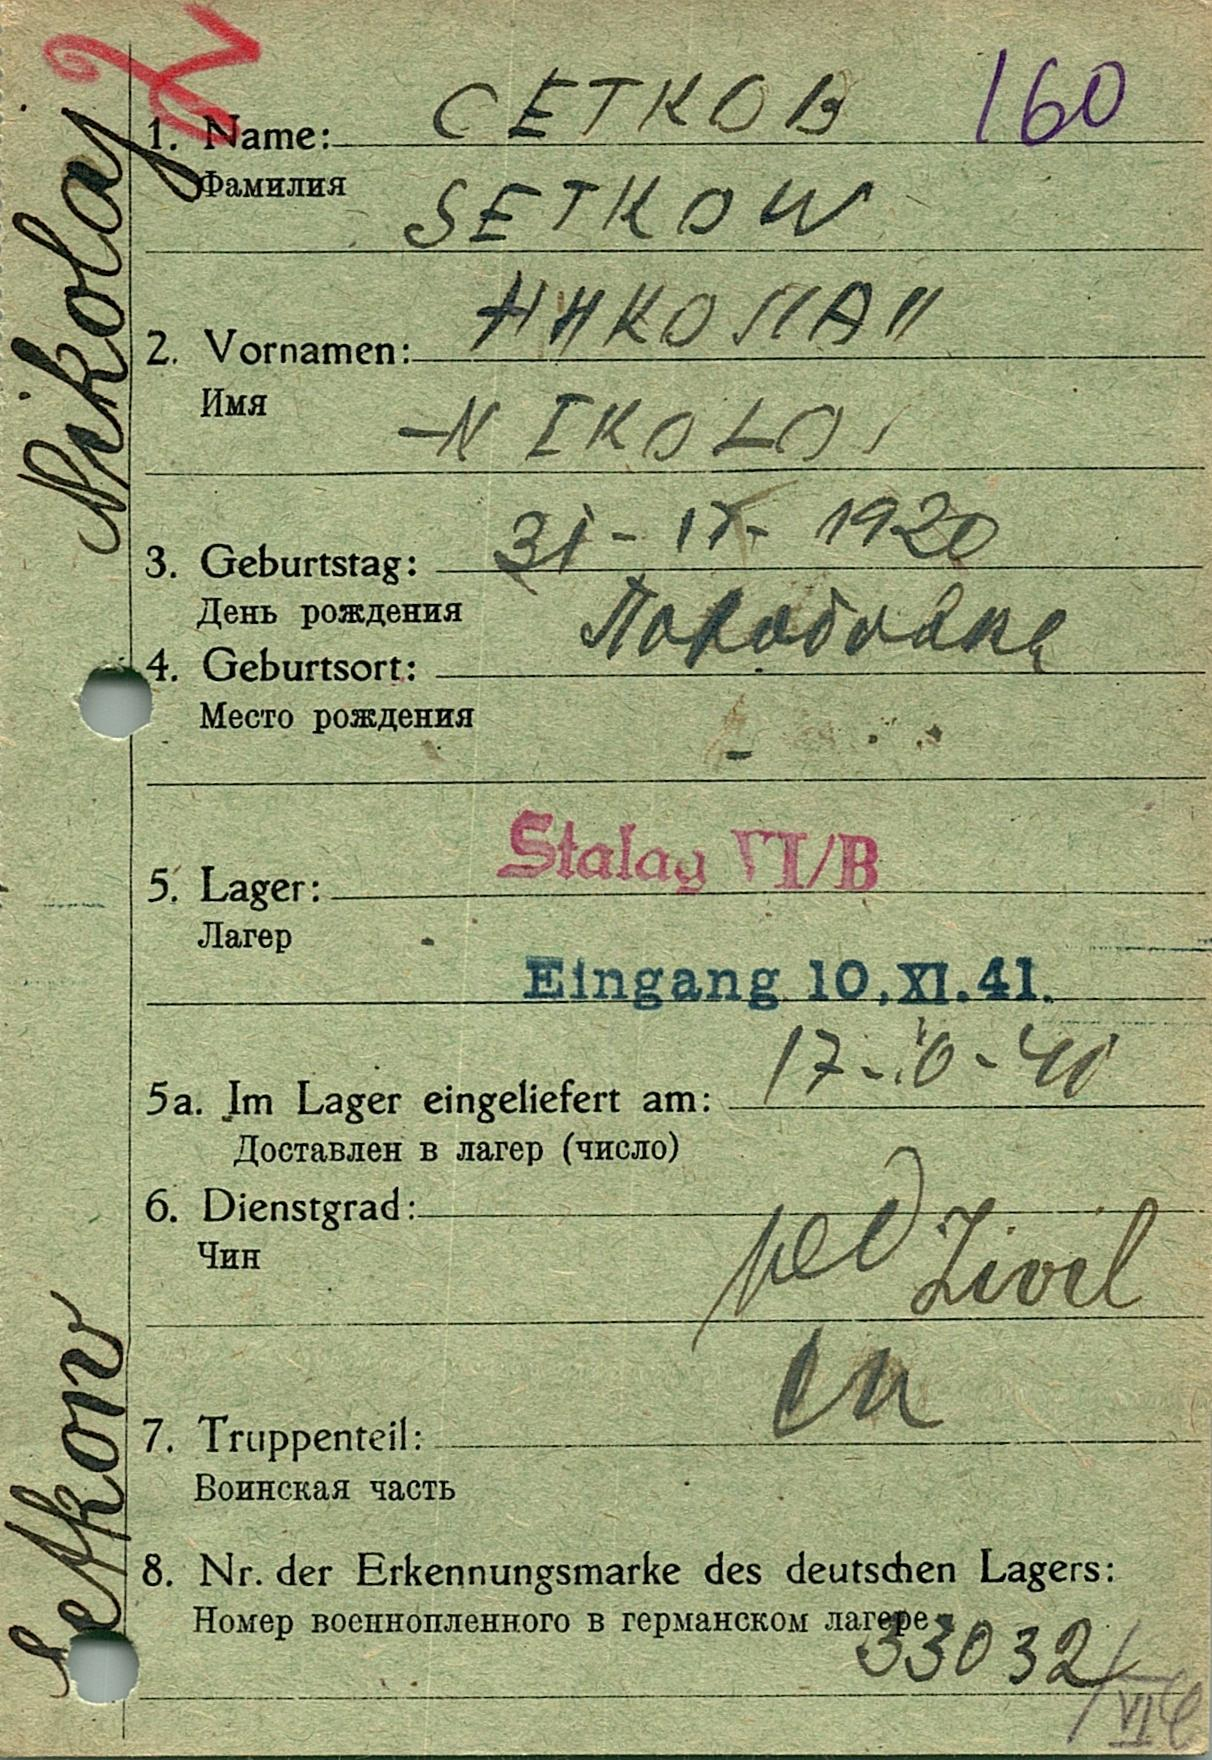 2
160
1. Name: СЕТКОВ
Фамилия
SETKOW
2. Vornamen: НИКОЛАИ
Имя
NIKOLOI
3. Geburtstag: 31 - IV - 1920
День рождения
4. Geburtsort:
Место рождения
5. Lager: Stalag VI/B
Лагер
Eingang 10. XI. 41.
5a. Im Lager eingeliefert am: 17-10-41
Доставлен в лагер (число)
6. Dienstgrad:
Чин
Zivil
7. Truppenteil:
Воинская часть
8. Nr. der Erkennungsmarke des deutschen Lagers:
Номер военнопленного в германском лагере
33032/
VI C
Setkow Nikolaj